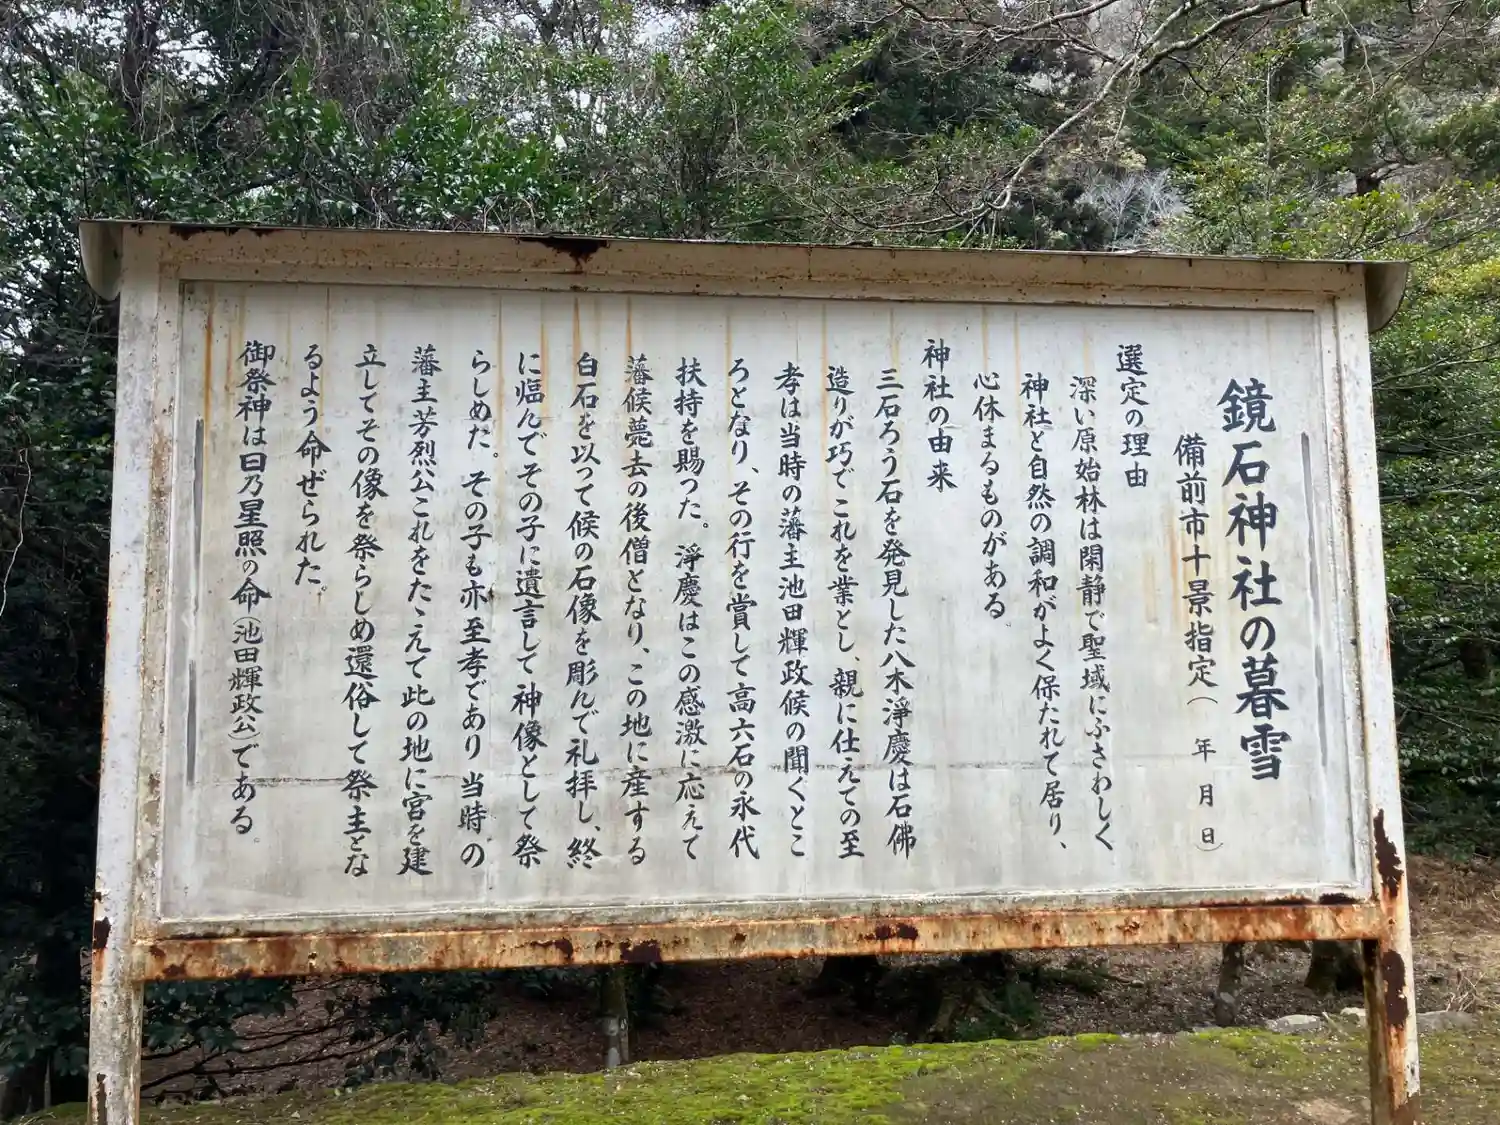 鏡石神社の暮雪
備前市十景指定(　年　月　日)
選定の理由
深い原始林は閑静で聖域にふさわしく
神社と自然の調和がよく保たれて居り、
心休まるものがある。
神社の由来
三石ろう石を発見した八木淨慶は石佛
造りが巧でこれを業とし、親に仕えての至
孝は当時の藩主池田輝政候の聞くとこ
ろとなり、その行を賞して高六石の永代
扶持を賜った。淨慶はこの感激に応えて
藩候薨去の後僧となり、この地に産する
白石を以って候の石像を彫んで礼拝し、終
に臨んでその子に遺言して神像として祭
らしめた。その子も亦至孝であり当時の
藩主芳烈公これをたゝえて此の地に宮を建
立してその像を祭らしめ還俗して祭主とな
るよう命ぜられた。
御祭神は日乃星照の命(池田輝政公)である。